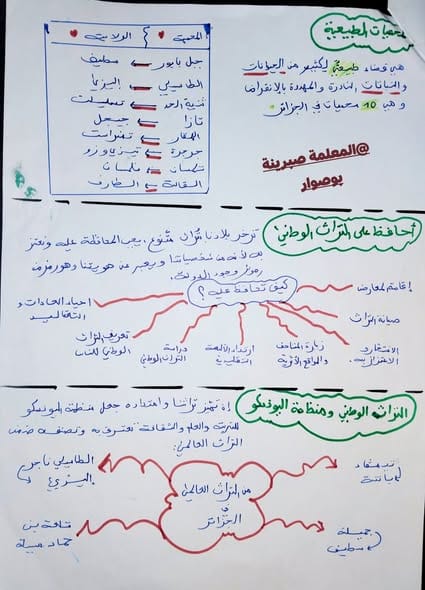 المحميات الطبيعية
هي فضاء طبيعي لكثير من الحيوانات
والنباتات النادرة والمهددة بالانقراض
وهي 10 محميات في الجزائر
@المعلمة صبرينة
بوصوار
المحمية الولاية
جبل بابور سطيف
الطاسيلي إليزيا
ثنية الحد تيسمسيلت
تازا جيجل
الهقار تمنراست
جرجرة تيزي وزو
تلمسان تلمسان
القالة الطارف
أحافظ على التراث الوطني
تزخر بلادنا بتراث متنوع، يجب المحافظة عليه ونعتز
به لأنه من شخصيتنا ويعبر عن هويتنا وهو رمز من
رموز وجود الدولة
كيف نحافظ عليه؟
إقامة المعارض
صيانة التراث
الافتخار
والاعتزاز به
زيارة المتاحف
والمواقع الأثرية
ارتداء الألبسة
التقليدية
دراسة
التراث الوطني
تعريف التراث
الوطني للناس
احياء العادات و
التقاليد
التراث الوطني ومنظمة اليونسكو
إن تميز تراثنا وامتداده جعل منظمة اليونسكو
للتربية والعلم والثقافة تعترف به وتصنفه ضمن
التراث العالمي:
من التراث العالمي
الجزائر
تيمقاد
باتنة
جميلة
سطيف
الطاسيلي ناجر
إليزي
قلعة بني
حماد مسيلة